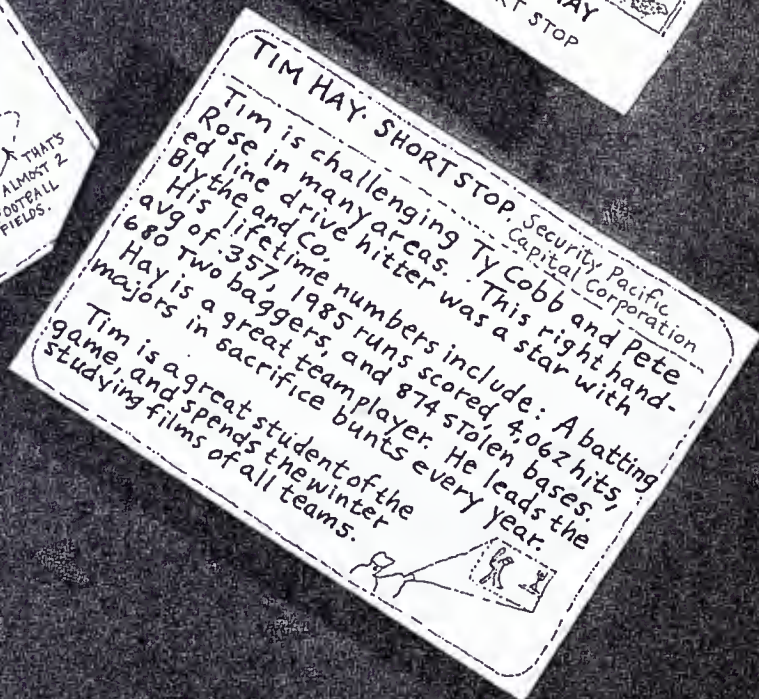 AY
RT STOP
THAT'S
ALMOST 2
FOOTBALL
FIELDS.
TIM HAY. SHORTSTOP. Security Pacific
Capital Corporation
Tim is challenging Ty Cobb and Pete
Rose in many areas. This right hand-
ed line drive hitter was a star with
Blythe and Co.
His lifetime numbers include: A batting
avg of .357, 1985 runs scored, 4,062 hits,
680 two baggers, and 874 stolen bases.
Hay is a great team player. He leads the
majors in sacrifice bunts every year.
Tim is a great student of the
game, and spends the winter
studying films of all teams.